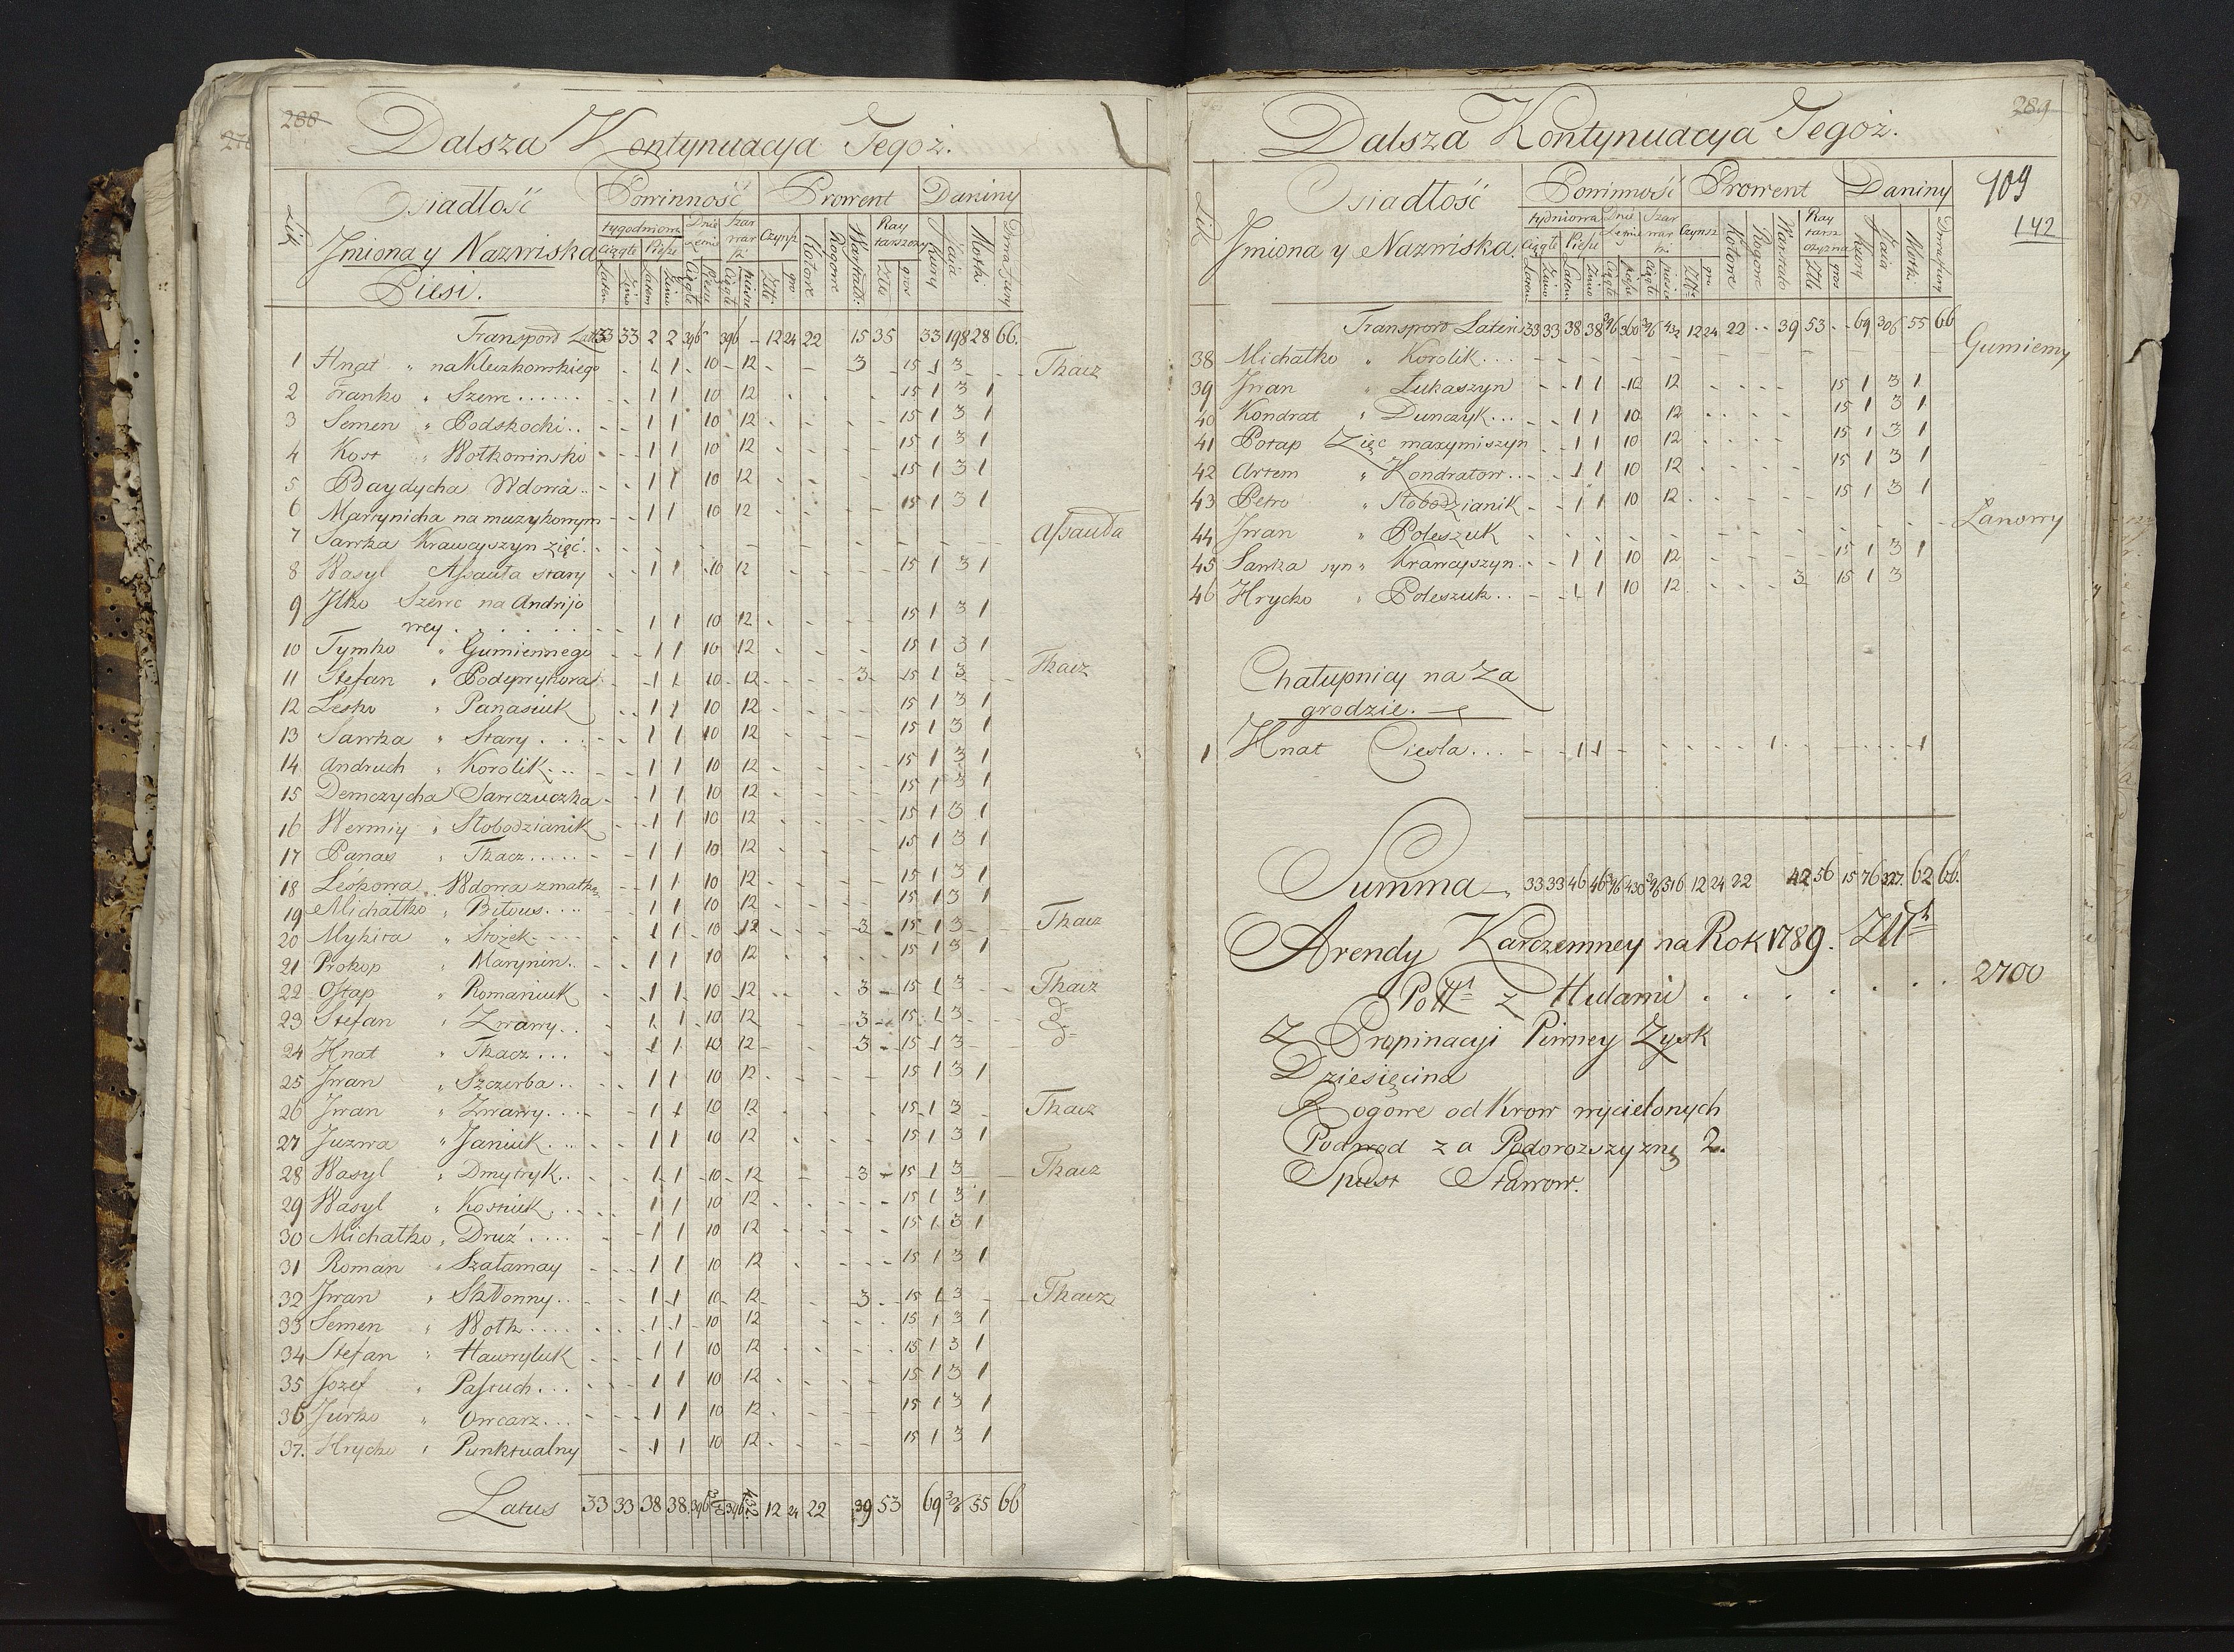 288
Dalsza Kontynuacya Tegoż.
Lik
Osiadłość
Powinność
Prowent
Daniny
Jmiona y Nazwiska
tygodniowa
Dnie Letnie
Szarwarki
Czynsz
Kotowe
Rogowe
Ray tarszczy
Kury
Jaia
Motki
Ciągłe
Piesze
Piesi.
Latem
Zimo
Latem
Zimo
Ciągłe
Piesze
Ciągłe
piesze
Złt
gr
Złt
gros
Transport 33 33 2 2 396 396 - 12 24 22 15 35 33 198 28 66.
1 Hnat " na Kluzkowskiego - - 1 1 - 10 - 12 - - 3 - 15 1 3 - - Tkacz
2 Franko " Szewc ...... - - 1 1 10 12 15 1 3 1
3 Semen " Podskocki .. - - 1 1 10 12 15 1 3 1
4 Kost " Wołkowinski - - 1 1 10 12 15 1 3 1
5 Baydycha Wdowa .. - - 1 1 10 12 15 1 3 1
6 Martynicha na muzykowym - - 1 1 10 12 15 1 3 1
7 Sawka Krawcyszyn zięć. - - - - Assauła
8 Wasyl Assauła stary - - 1 1 10 12 15 1 3 1
9 Jlko Szewc na Andrijo
wey . . . . . . - - 1 1 10 12 15 1 3 1
10 Tymko " Gumiennego - - 1 1 10 12 15 1 3 1
11 Stefan " Podeprykora - - 1 1 10 - 12 - - 3 - 15 1 3 - - Tkacz
12 Lesko " Panasiuk - - 1 1 10 12 15 1 3 1
13 Sawka " Stary . . . - - 1 1 10 12 15 1 3 1
14 Andruch " Korolik ... - - 1 1 10 12 15 1 3 1
15 Demczycha Sawczuczka - - 1 1 10 12 15 1 3 1
16 Wermiy " Słobodzianik - - 1 1 10 12 15 1 3 1
17 Panas " Tkacz ..... - - 1 1 10 12 15 1 3 1
18 Leśkowa " Wdowa z matką - - 1 1 10 12 15 1 3 1
19 Michałko " Bitous .... 1 1 10 12 15 1 3 1
20 Mykita " Stożek .... 1 1 - 10 12 - - 3 - 15 1 3 - - Tkacz
21 Prokop " Marynin .. - - 1 1 10 12 15 1 3 1
22 Ostap " Romaniuk - 1 1 - 10 - 12 - - 3 - 15 1 3 - - Tkacz
23 Stefan " Zwary .. - 1 1 10 12 - - 3 - 15 1 3 - - do
24 Hnat " Tkacz ... 1 1 - 10 12 - - 3 - 15 1 3 - do
25 Jwan " Szczerba .. - - 1 1 10 12 15 1 3 1
26 Jwan " Zwary ... - 1 1 10 12 15 1 3 - Tkacz
27 Juzwa " Janiuk ... - - 1 1 10 12 15 1 3 1
28 Wasyl " Dmytryk .. - - 1 1 - 10 - 12 - 3 - 15 1 3 - Tkacz
29 Wasyl " Kostiuk .... 1 1 10 12 15 1 3 1
30 Michałko " Druź ..... 1 1 10 12 15 1 3 1
31 Roman " Szałamay - - - 1 1 10 12 15 1 3 1
32 Jwan " Skłonny .. - 1 1 10 - 12 - - 3 - 15 1 3 - - Tkacz
33 Semen " Wołk .... 1 1 10 12 15 1 3 1
34 Stefan " Hawryluk ... 1 1 10 12 15 1 3 1
35 Jozef " Pastuch ... 1 1 10 12 15 1 3 1
36 Jurko " Owcarz .... 1 1 10 12 15 1 3 1
37. Hrycko " Punktualny - 1 1 10 12 15 1 3 1
Latus 33 33 38 38 396 396 432 12 24 22 39 53 69 306 55 66
289
Dalsza Kontynuacya Tegoż.
109
142
Lik
Osiadłość
Powinność
Prowent
Daniny
Jmiona y Nazwiska.
tydniowa
Dnie Letnie
Szarwarki
Czynsz
Kotowe
Rogowe
Ray tarszczyzna
Kury
Jaia
Motki
Ciągłe
Piesze
Latem
Zimo
Latem
Zimo
Ciągłe
piesze
Ciągłe
piesze
Złt
gr
Złt
gros
Transport Lateris 33 33 38 38 396 360 396 432 12 24 22 .. 39 53 .. 69 306 55 66
38 Michałko " Korolik ... - - - Gumienny
39 Jwan " Łukaszyn - - 1 1 10 12 15 1 3 1
40 Kondrat " Dunczyk ... - 1 1 10 12 15 1 3 1
41 Potap Zięć maxymiszyn - 1 1 10 12 15 1 3 1
42 Artem " Kondratow .. - 1 1 10 12 15 1 3 1
43 Petro " Słobodzianik - - 1 1 10 12 15 1 3 1
44 Jwan " Poleszuk - - - Łanowy
45 Sawka syn " Krawcyszyn . - - 1 1 10 12 15 1 3 1
46 Hrycko " Poleszuk .. - - 1 1 10 12 3 15 1 3
Chałupnicy na Za
grodzie.
1 Hnat Ciesla ... - - 1 1 - 1 1
Summa 33 33 46 46 396 430 396 316 12 24 22 42 56 15 76 327. 62 66.
Arendy Karczemney na Rok 1789. Złt
Pott z Hulami . . . . . . . . 2700
Z Propinacyi Piwney Zysk
Dziesięcina
Rogowe od Krow wycielonych
Podwod za Podorozszyznę 2.
Spust Stawow.